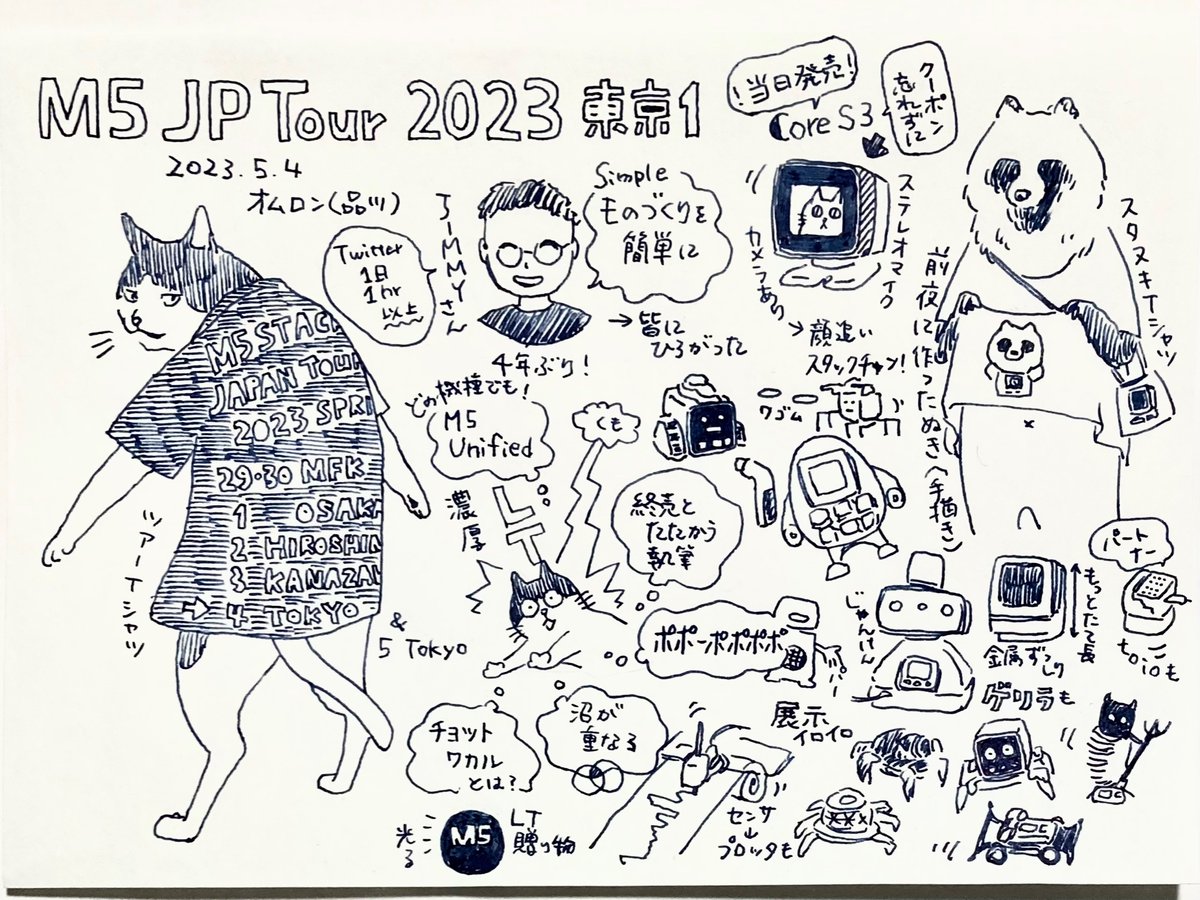 M5 JP Tour 2023 東京1
2023.5.4
オムロン(品川)
!当日発売!
クーポン
忘れずに
Core S3
ステレオマイク
カメラあり
→顔追い
スタックチャン!
Twitter
1日
1hr
以上
JIMMYさん
4年ぶり!
Simple
ものづくりを
簡単に
→皆に
ひろがった
スタヌキTシャツ
前夜に作ったたぬき(手描き)
M5STACK
JAPAN TOUR
2023 SPRI
29・30 MFK
1 OSAKA
2 HIROSHIM
3 KANAZAW
⇨4 TOKYO
& 5 Tokyo
ツアーTシャツ
どの機種でも!
M5
Unified
くも
クゴム
濃厚
LT
終売と
たたかう
執筆
ポポーポポポポ
パー
じゃんけん
もっとたて長
金属ずっしり
パートナー
toioも
ゲリラも
チョット
ワカル
とは?
沼が
重なる
展示
イロイロ
センサ
プロッタも
光る
M5
LT
贈り物